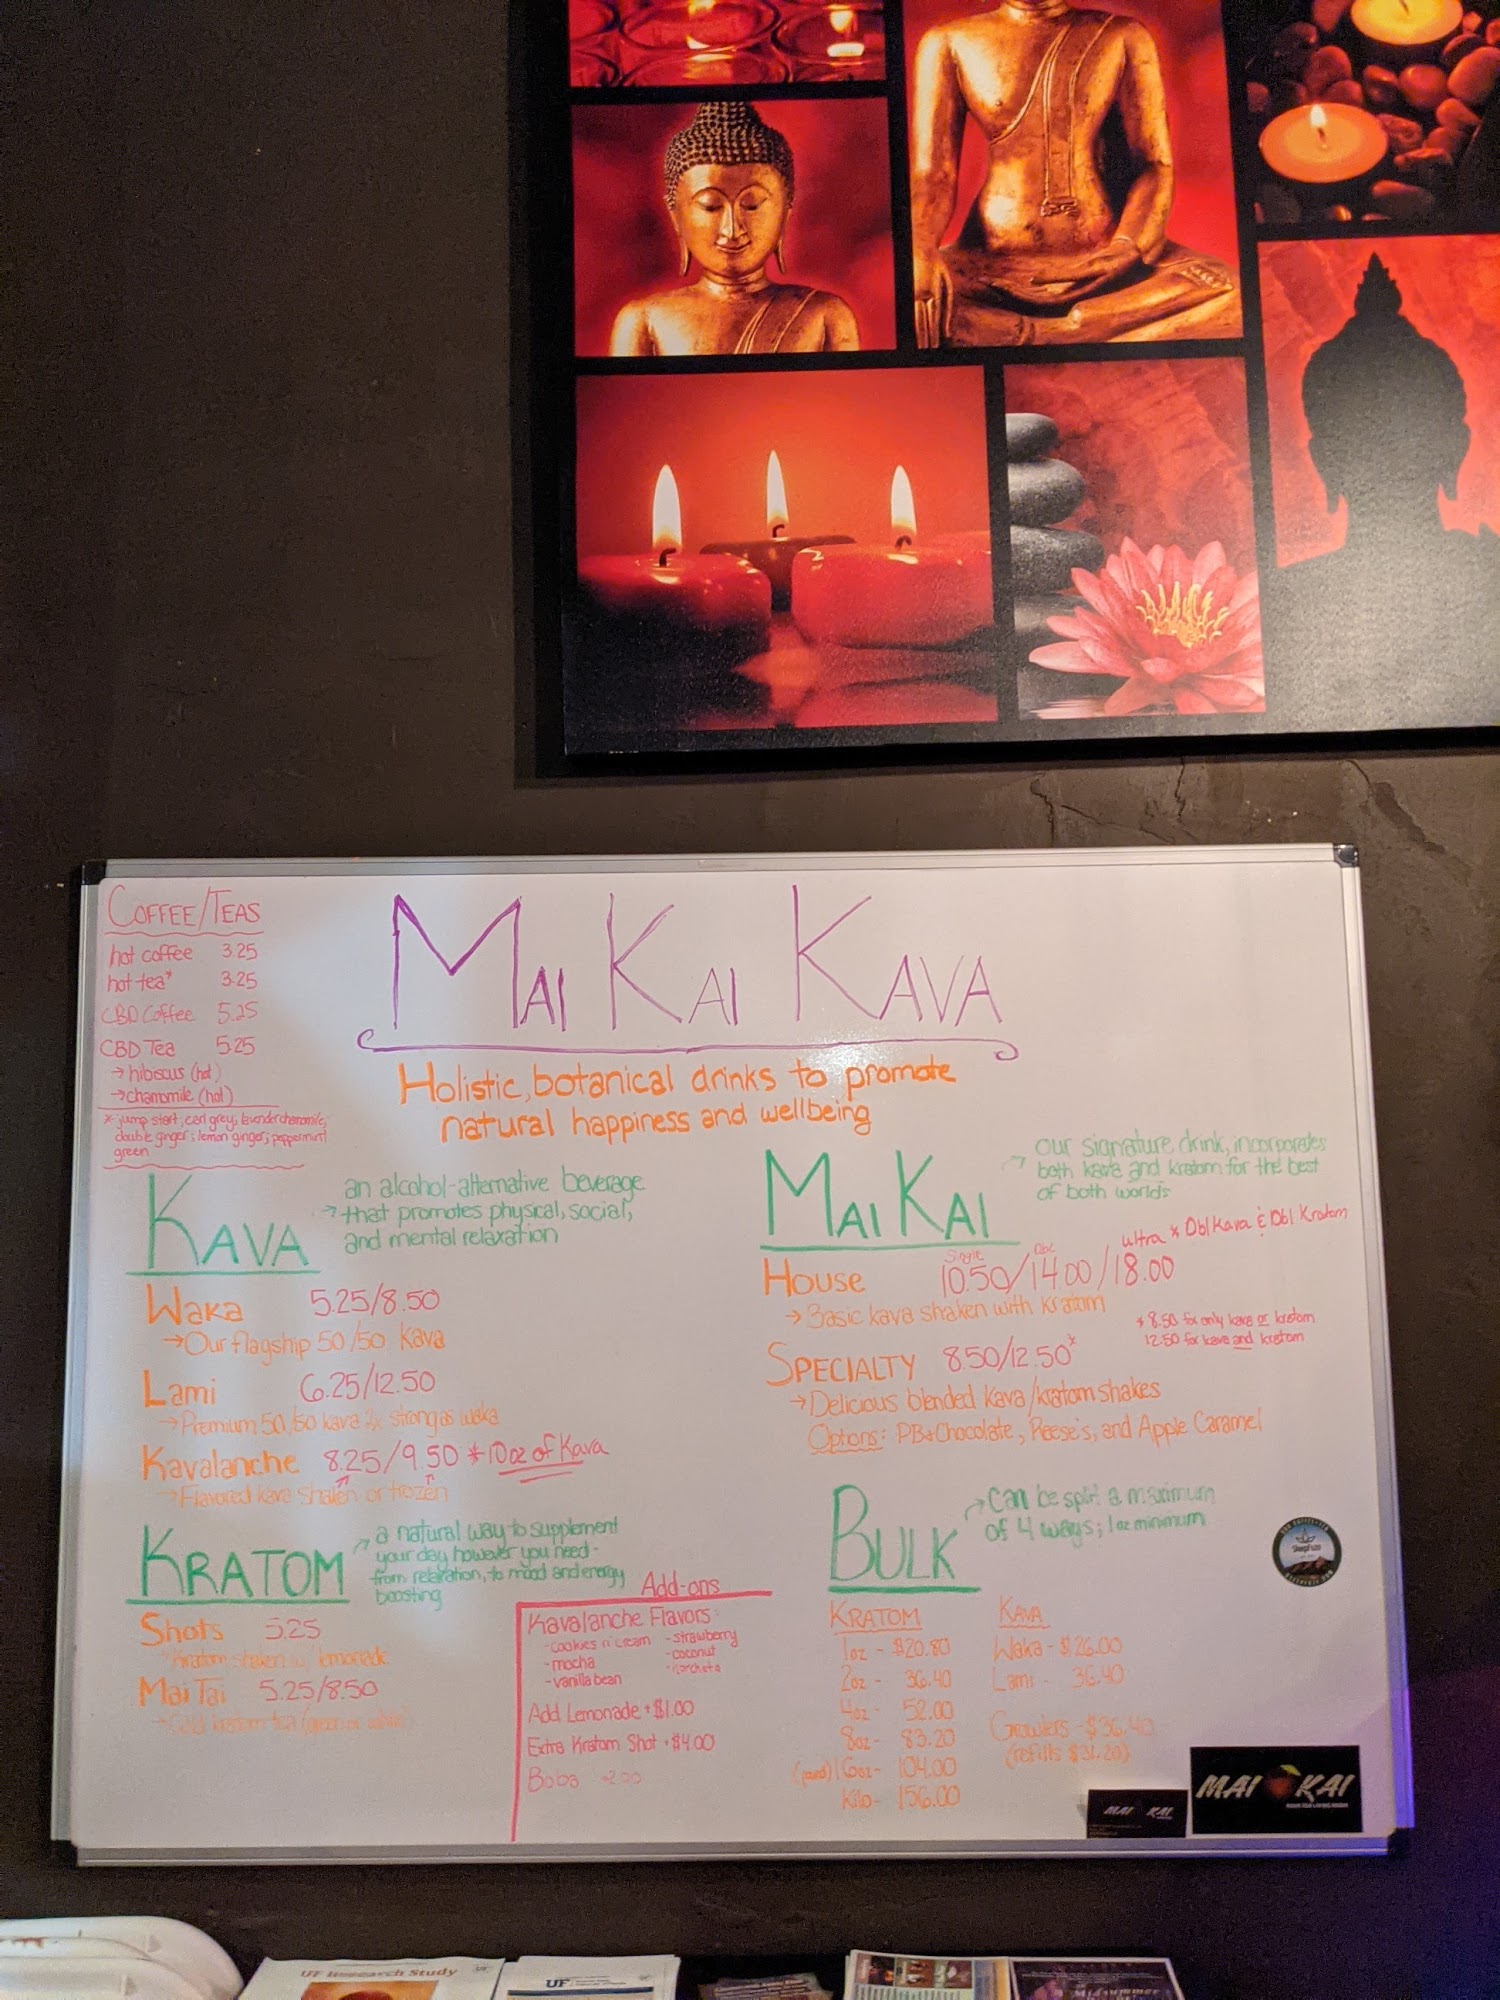 COFFEE/TEAS
hot coffee 3.25
hot tea* 3.25
CBD Coffee 5.25
CBD Tea 5.25
→ hibiscus (hot)
→ chamomile (hot)
* jump start, earl grey, lavender chamomile,
double ginger, lemon ginger, peppermint
green
MAI KAI KAVA
Holistic, botanical drinks to promote
natural happiness and wellbeing
KAVA
an alcohol-alternative beverage
→ that promotes physical, social,
and mental relaxation
Waka 5.25/8.50
→ Our flagship 50/50 Kava
Lami 6.25/12.50
→ Premium 50/50 kava 2x strong as waka
Kavalanche 8.25/9.50 *10oz of Kava
→ Flavored kava shaken or frozen
KRATOM
→ a natural way to supplement
your day however you need-
from relaxation, to mood and energy
boosting
Shots 5.25
→ Kratom shaken w/ lemonade
Mai Tai 5.25/8.50
→ Cold kratom tea (green or white)
Add-ons
Kavalanche Flavors:
-cookies n' cream -strawberry
-mocha -coconut
-vanilla bean -horchata
Add Lemonade +$1.00
Extra Kratom Shot +$4.00
Boba +2.00
MAI KAI
→ our signature drink, incorporates
both kava and kratom for the best
of both worlds
ultra * Dbl Kava & Dbl Kratom
Single Dbl
HOUSE 10.50/14.00/18.00
→ Basic kava shaken with kratom
* 8.50 for only kava or kratom
12.50 for kava and kratom
SPECIALTY 8.50/12.50*
→ Delicious blended kava/kratom shakes
Options: PB+Chocolate, Reese's, and Apple Caramel
BULK
→ can be split a maximum
of 4 ways; 1oz minimum
KRATOM
1oz - $20.80
2oz - 36.40
4oz - 52.00
8oz - 83.20
(pound) 16oz - 104.00
Kilo - 156.00
KAVA
Waka - $26.00
Lami - 36.40
Growlers - $36.40
(refills $31.20)
MAI KAI
MAI KAI
UF Research Study
UF
UF
A Midsummer